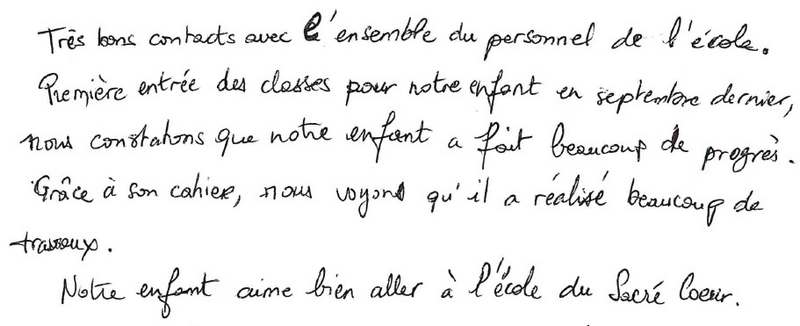 Très bons contacts avec l'ensemble du personnel de l'école.
Première entrée des classes pour notre enfant en septembre dernier,
nous constatons que notre enfant a fait beaucoup de progrès.
Grâce à son cahier, nous voyons qu'il a réalisé beaucoup de
travaux.
Notre enfant aime bien aller à l'école du Sacré Coeur.